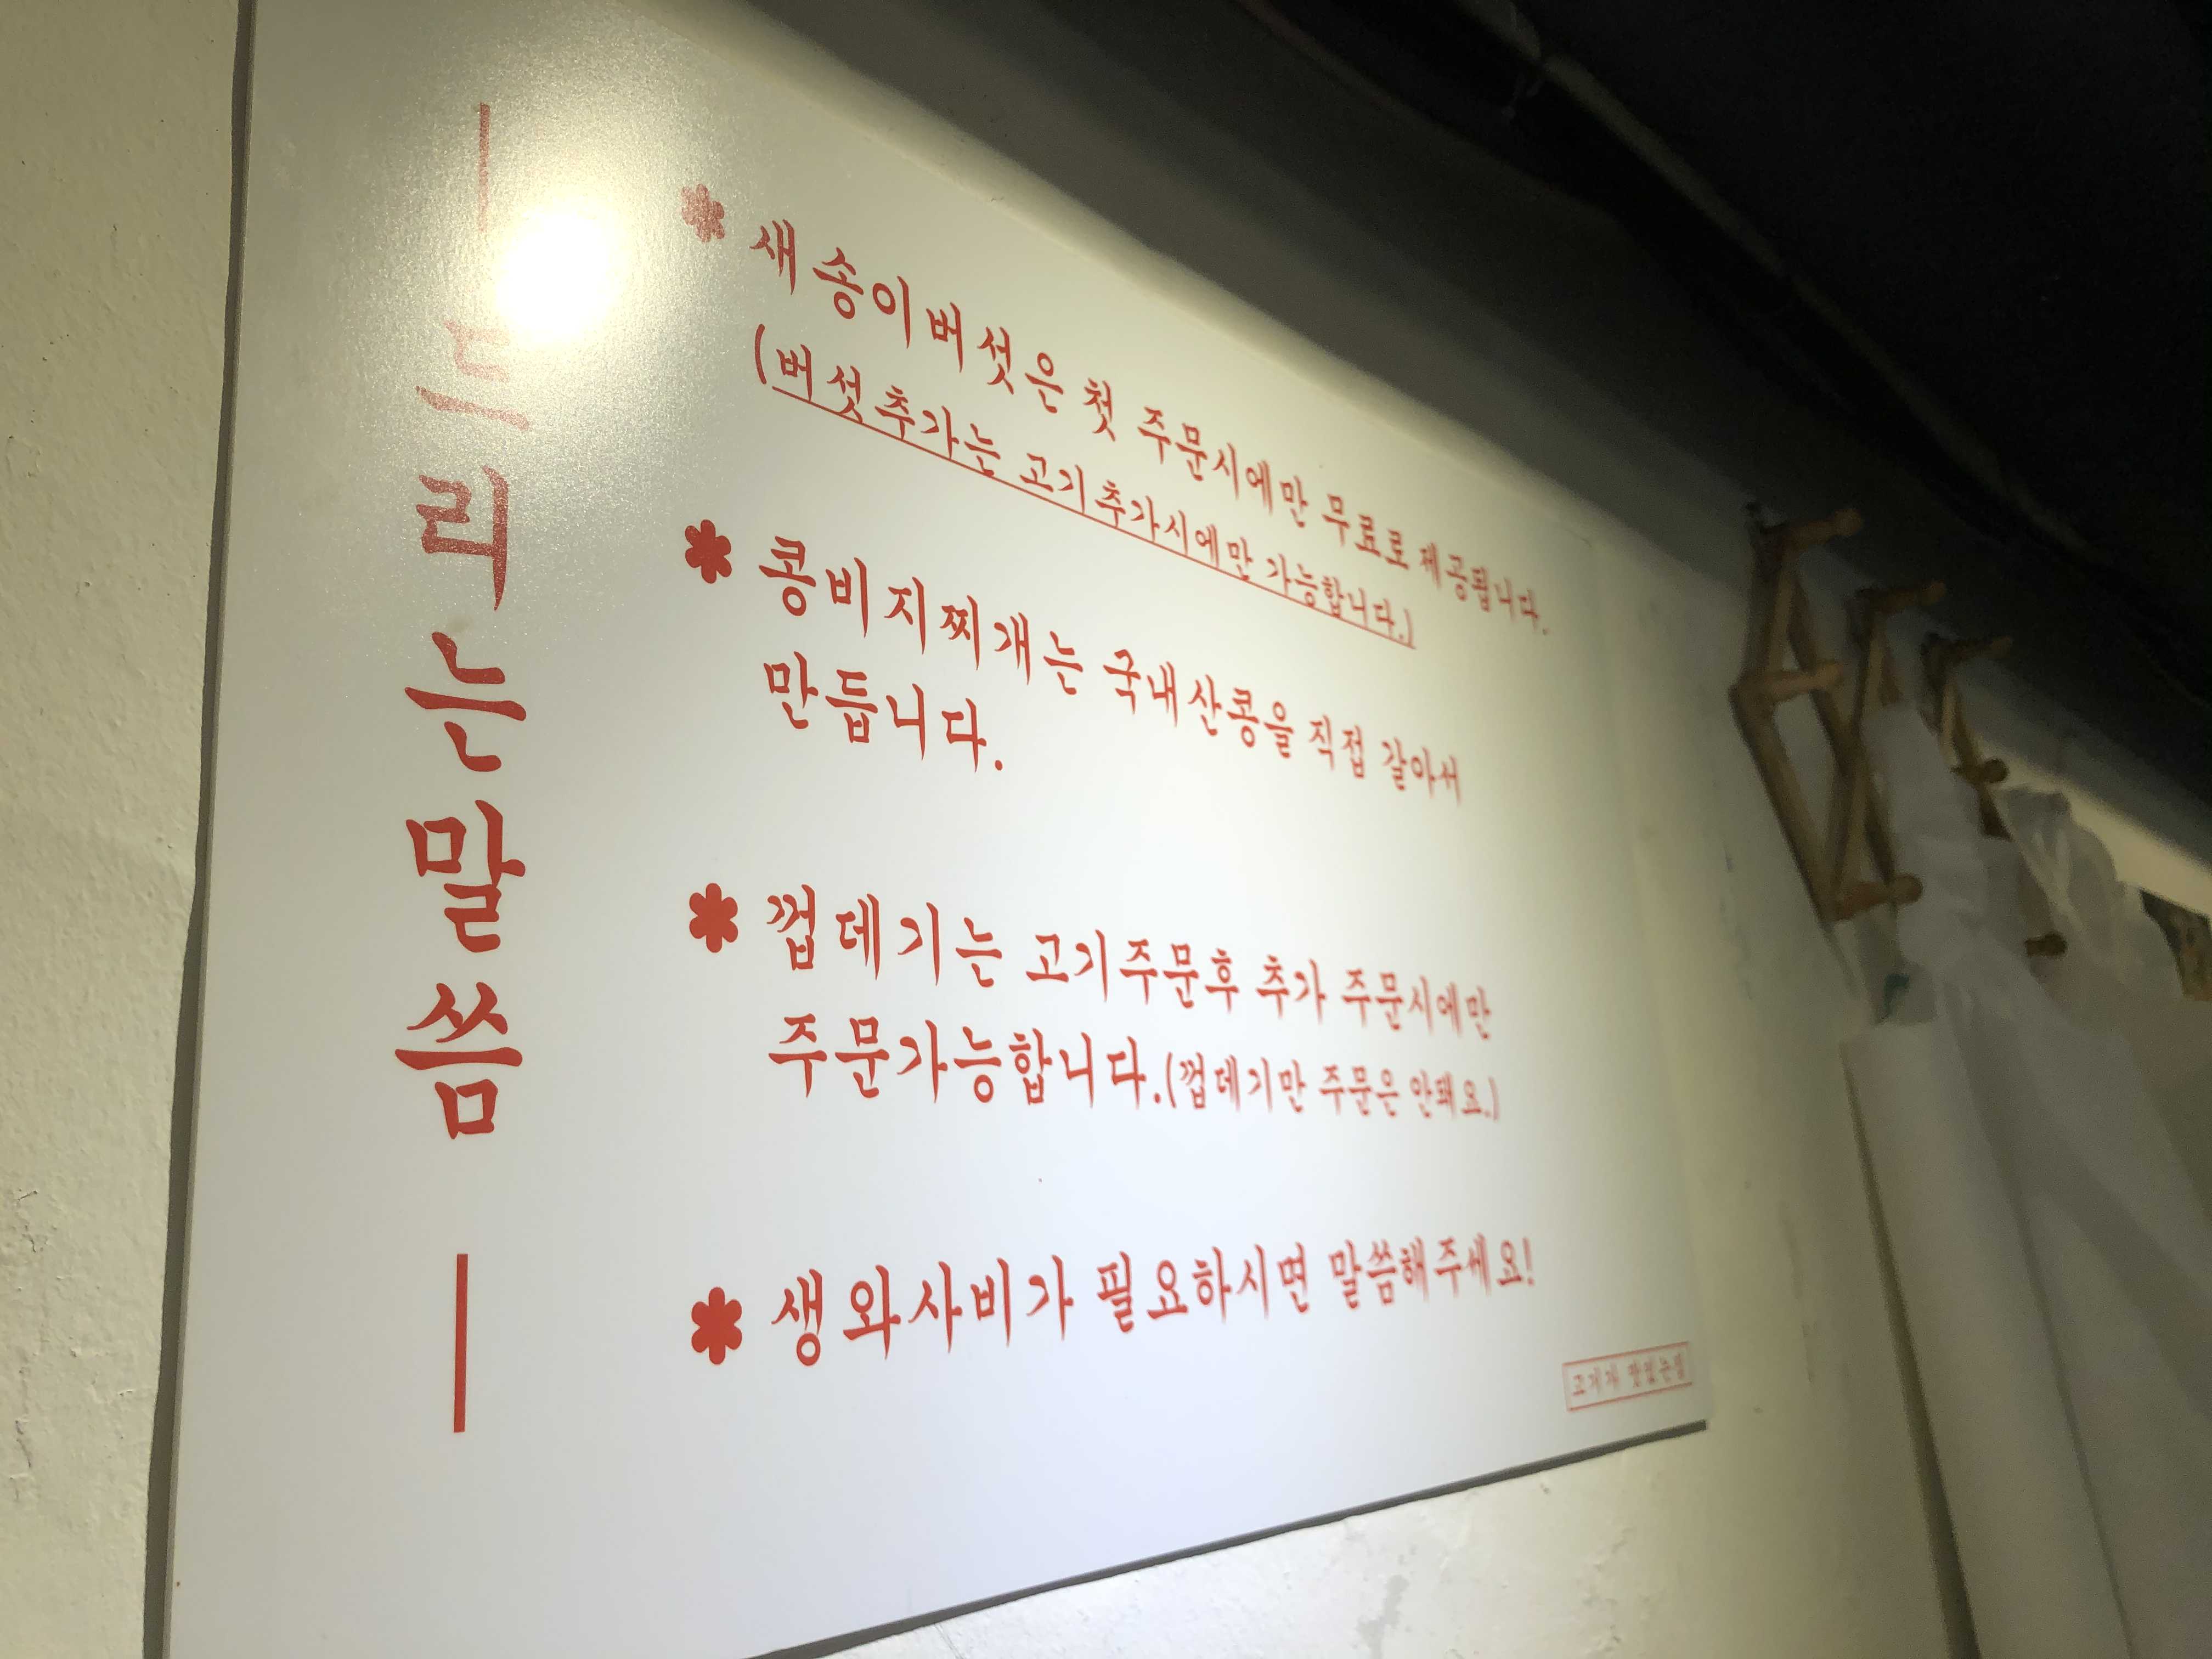 드리는말씀
새송이버섯은 첫 주문시에만 무료로 제공됩니다.
(버섯추가는 고기추가시에만 가능합니다.)
콩비지찌개는 국내산콩을 직접 갈아서
만듭니다.
껍데기는 고기주문후 추가 주문시에만
주문가능합니다.(껍데기만 주문은 안돼요.)
생와사비가 필요하시면 말씀해주세요!
고기가 맛있는집